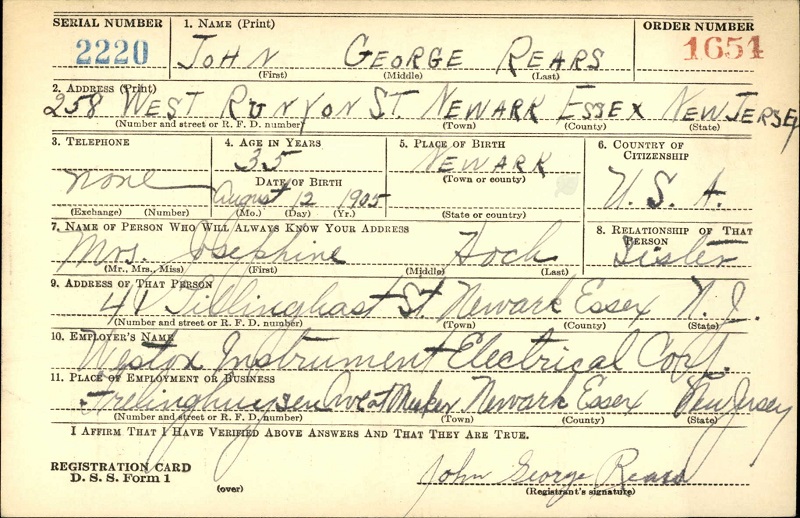 SERIAL NUMBER 1. NAME (Print) ORDER NUMBER
2220 JOHN GEORGE REARS 1654
(First) (Middle) (Last)
2. ADDRESS (Print)
258 WEST RUNYON ST. NEWARK ESSEX NEW JERSEY
(Number and street or R. F. D. number) (Town) (County) (State)
3. TELEPHONE 4. AGE IN YEARS 5. PLACE OF BIRTH 6. COUNTRY OF CITIZENSHIP
none 35 NEWARK U. S. A.
(Town or county)
DATE OF BIRTH
August 12 1905
(Exchange) (Number) (Mo.) (Day) (Yr.) (State or country)
7. NAME OF PERSON WHO WILL ALWAYS KNOW YOUR ADDRESS 8. RELATIONSHIP OF THAT PERSON
Mrs. Josephine Hoch Sister
(Mr., Mrs., Miss) (First) (Middle) (Last)
9. ADDRESS OF THAT PERSON
41 Tillinghast St. Newark Essex N. J.
(Number and street or R. F. D. number) (Town) (County) (State)
10. EMPLOYER'S NAME
Weston Instrument Electrical Corp.
11. PLACE OF EMPLOYMENT OR BUSINESS
Frelinghuysen Ave at Meeker Newark Essex New Jersey
(Number and street or R. F. D. number) (Town) (County) (State)
I AFFIRM THAT I HAVE VERIFIED ABOVE ANSWERS AND THAT THEY ARE TRUE.
REGISTRATION CARD
D. S. S. Form 1 (over)
John George Rears
(Registrant's signature)